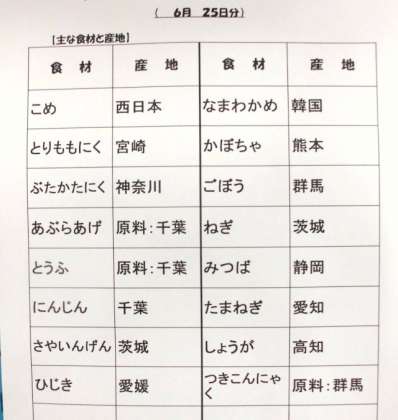 ( 6月 25日分)
【主な食材と産地】
食 材 産 地 食 材 産 地
こめ 西日本 なまわかめ 韓国
とりももにく 宮崎 かぼちゃ 熊本
ぶたかたにく 神奈川 ごぼう 群馬
あぶらあげ 原料:千葉 ねぎ 茨城
とうふ 原料:千葉 みつば 静岡
にんじん 千葉 たまねぎ 愛知
さやいんげん 茨城 しょうが 高知
ひじき 愛媛 つきこんにゃく 原料:群馬